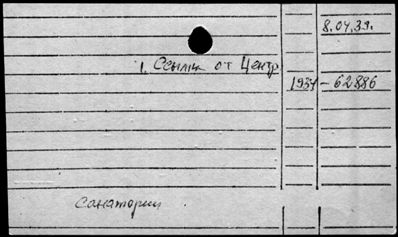 8.04.39.
1. Ссылка от Центр
1937 - 62886
санатории